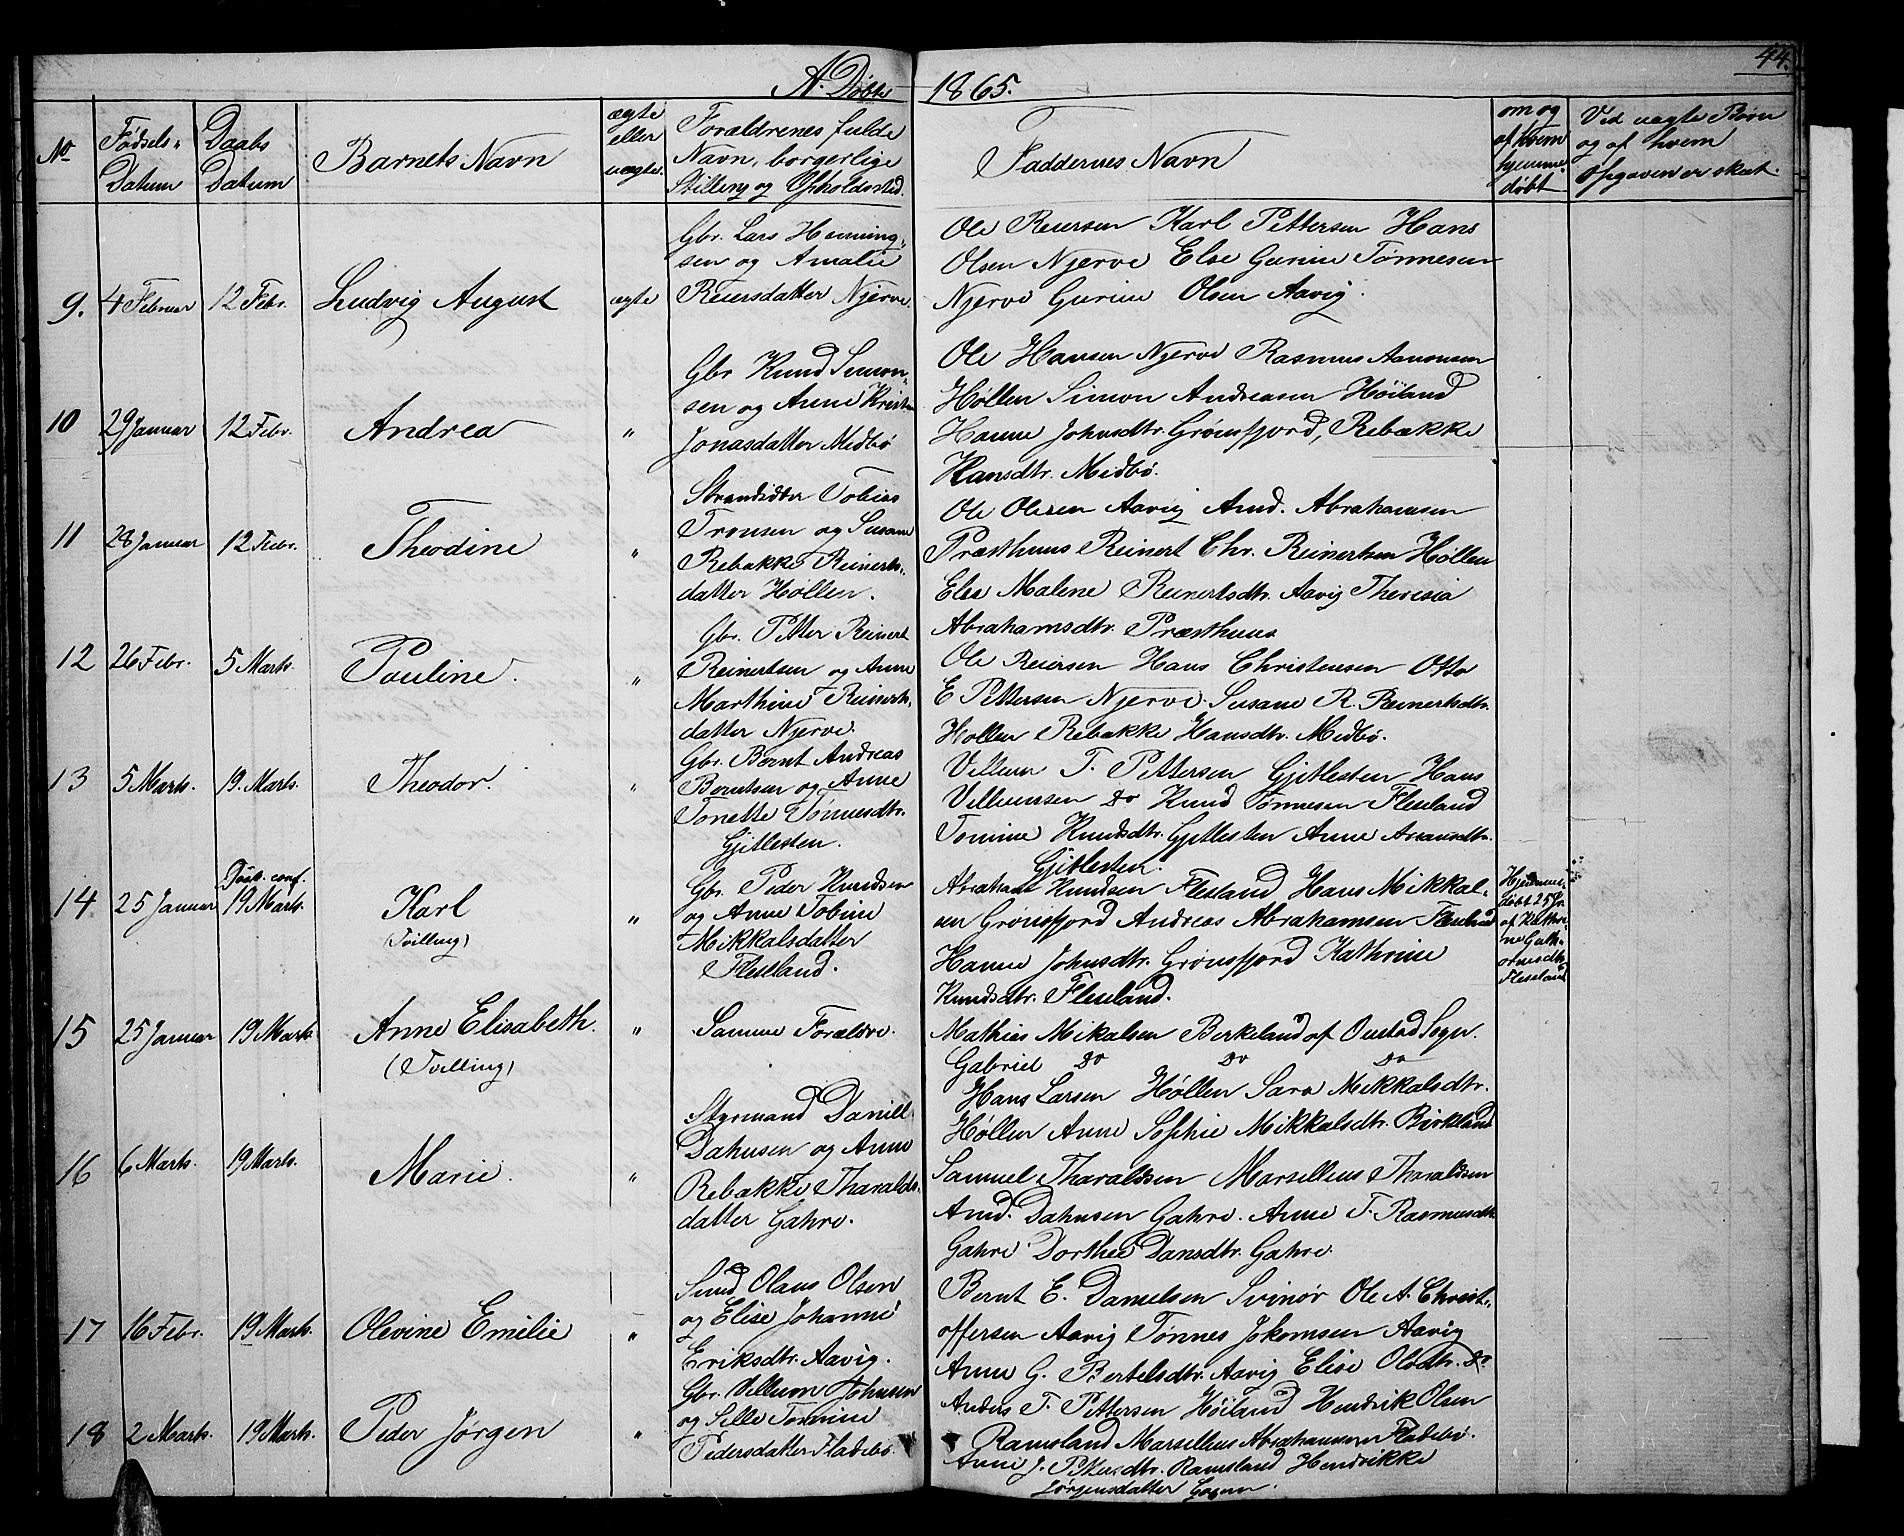 44.
A. Døbte 1865.
No
Fødsels-
Datum
Daabs
Datum
Barnets Navn
ægte
eller
uægte.
Forældrenes fulde
Navn, borgerlige
Stilling og Opholdssted.
Faddernes Navn
om og
af hvem
hjemme-
døbt
Ved uægte Børn
og af hvem
Opgaven er skeet.
9. 4 Februar 12 Febr. Ludvig August ægte
Gbr. Lars Henning-
sen og Amalie
Reiersdatter Njerve.
Ole Reiersen Karl Pettersen Hans
Olsen Njerve Else Gurine Tønnesen
Njerve Gurine Olsen Aavig.
10 29 Januar 12 Febr. Andrea "
Gbr Knud Simon-
sen og Anne Kristine
Jonasdatter Medbø
Ole Hansen Njerve Rasmus Aanonsen
Høllen Simon Andreasen Høiland
Hanne Johnsdtr. Grønsfjord, Rebække
Hansdtr. Medbø.
11 28 Januar 12 Febr. Theodine "
Strandsidder Tobias
Tronsen og Susane
Rebække Reinerts-
datter Høllen.
Ole Olesen Aavig Arnd. Abrahamsen
Præsthuus Reinert Chr. Reinertsen Høllen
Else Malene Reinertsdtr. Aavig Theresia
Abrahamsdtr. Præsthuus
12 26 Febr. 5 Marts. Pauline. "
Gbr. Petter Reinert
Reinertsen og Anne
Marthine Reinerts-
datter Njerve.
Ole Reiersen Hans Christensen Otto
E Pettersen Njerve. Susane R. Reinertsdtr.
Høllen Rebække Hansdtr. Medbø.
13 5 Marts. 19. Marts. Theodor. "
Gbr. Bernt Andreas
Berntsen og Anne
Tonette Tønnesdtr.
Gjitlesten.
Villum T. Pettersen Gjitlesten Hans
Villumsen Do Knud Tønnesen Fleseland
Tomine Knudsdtr. Gjitlesten Anne Aasansdtr.
Gjitlesten.
Daab. conf.
14 25 Januar 19 Marts. Karl "
(Tvilling)
Gbr. Peder Knudsen
og Anne Tobine
Mikkalsdatter
Fleseland.
Abraham Knudsen Fleseland Hans Mikkal-
sen Grønsfjord Andreas Abrahamsen Fleseland
Hanne Johnsdtr. Grønsfjord Kathrine
Knudsdtr. Fleseland.
Hjemme-
døbt 25 Ja
af Kathri-
ne Guth-
ormsdtr.
Fleseland
15 25 Januar 19 Marts. Anne Elisabeth. "
(Tvilling)
Samme Forældre.
Mathias Mikalsen Birkeland af Øuslad Sogn.
Gabriel Do Do Do
Hans Larsen Høllen Sara Mikkalsdtr.
Høllen Anne Sophie Mikkalsdtr. Birkeland
16 6 Marts. 19 Marts. Marie. "
Styrmand Daniel
Dahnsen og Anne
Rebække Tharalds-
datter Gahre.
Samuel Tharaldsen Marsellius Tharaldsen
Arnd. Dahnsen Gahre. Anne T. Rasmusdtr.
Gahre Dorthea Dansdtr. Gahre.
17 16 Febr. 19 Marts. Olevine Emilie "
Smed Olaus Olsen
og Elise Johanne
Eriksdtr. Aavig.
Bernt E. Danielsen Svinør Ole A. Christ-
offersen Aavig Tønnes Jokomsen Aavig
Anne G. Bertelsdtr. Aavig Elise Olsdtr. Do
18 2 Marts. 19 Marts. Peder Jørgen "
Gbr. Villum Johnsen
og Sille Tomine
Pedersdatter Fladebø.
Anders T. Pettersen Høiland Hendrik Olsen
Ramsland Marsellius Abrahamsen Fladebø.
Anne J. Pettersdtr. Ramsland Hendrikke
Jørgensdatter